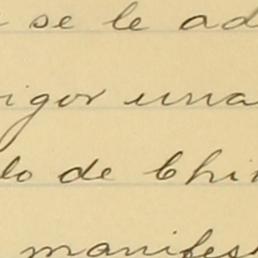 se le ad
igor una
lo de Chi
manifes